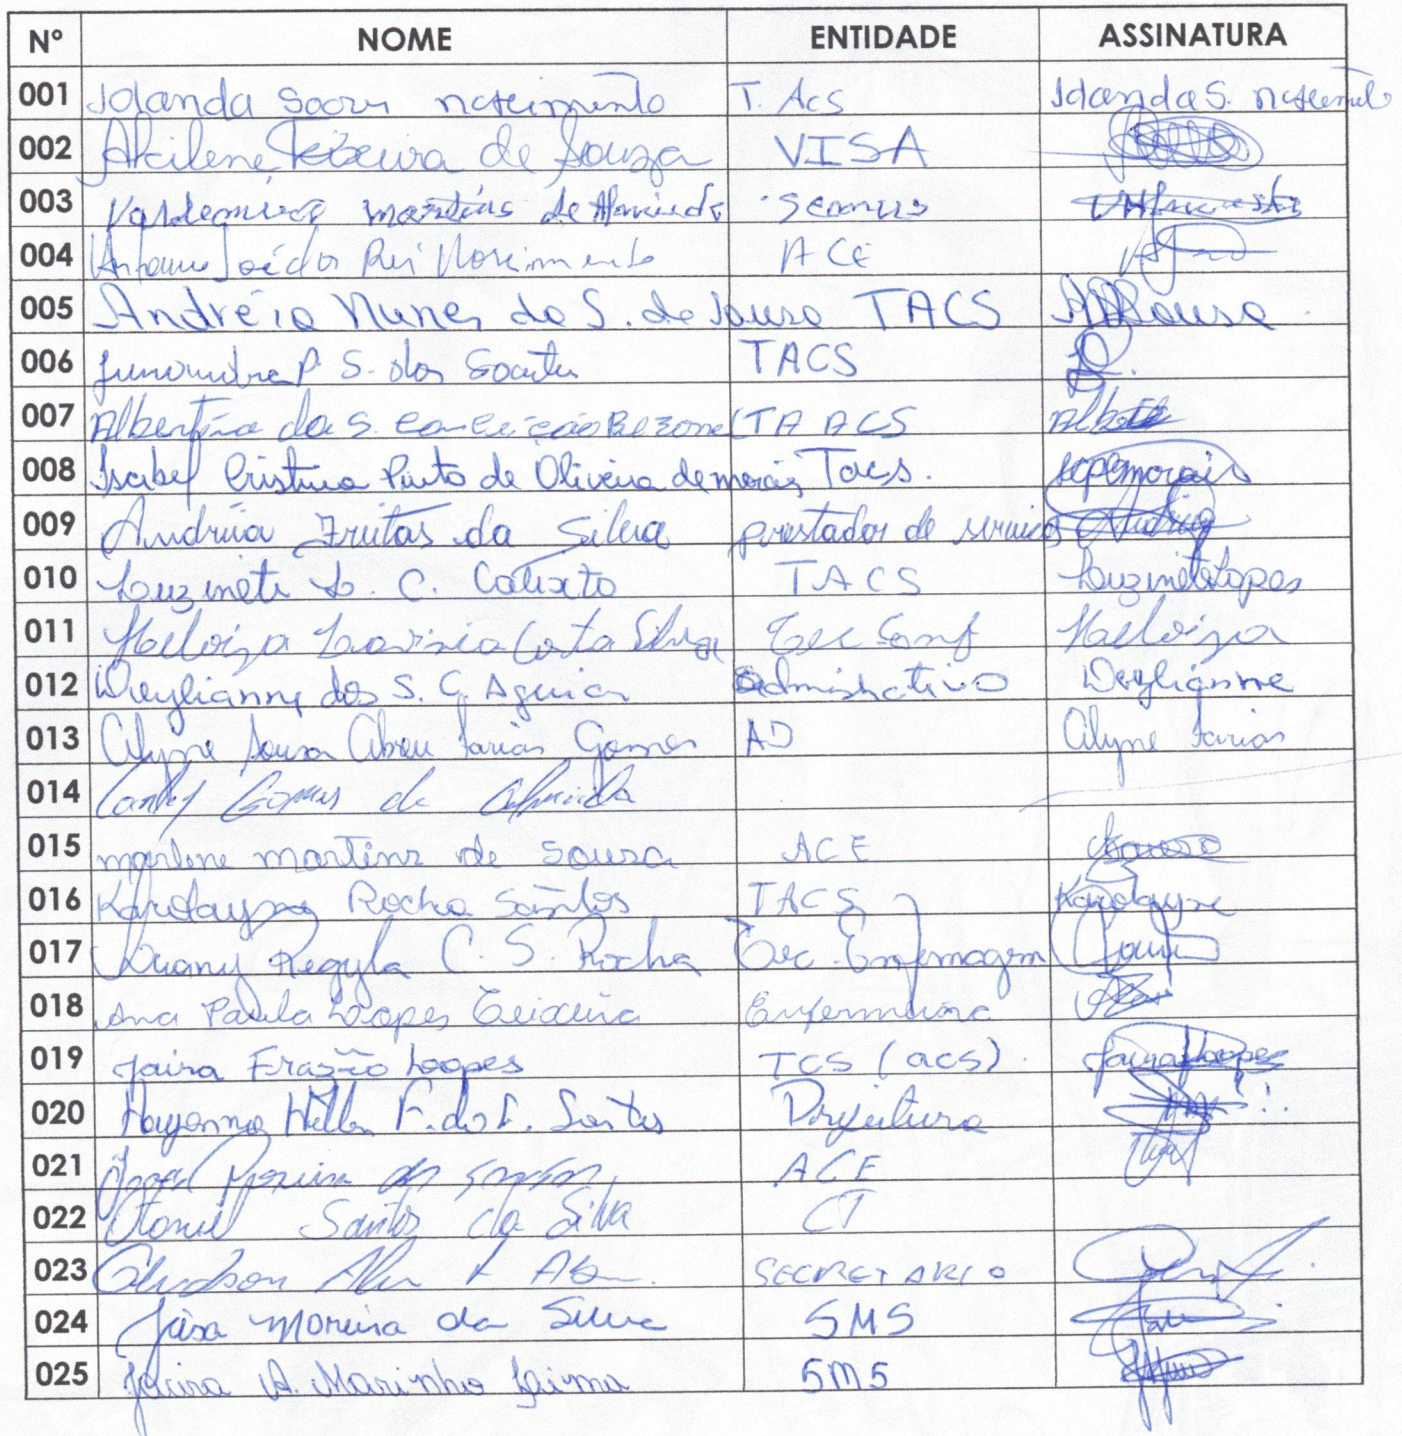 Nº NOME ENTIDADE ASSINATURA
001 Iolanda Soares nascimento T. Acs Iolanda S. nascimento
002 Akilene Teixeira de Souza VISA
003 Valdemira martins de Almeida Semus
004 Antonio José dos Reis Nascimento ACE
005 Andréia Nunes da S. de Sousa TACS ANSousa
006 P. S. dos Santos TACS
007 Albertina da S. Conceição TA ACS
008 Isabel Cristina Pinto de Oliveira de morais Tacs. icpomorais
009 Andréia Freitas da Silva prestador de serviços
010 Luzinete L. C. Calixto TACS Luzinete Lopes
011 Heloiza Lavinia Costa Silva Tec Enf Heloiza
012 Weylianny dos S. C. Aguiar administrativo Weylianne
013 Alyne Sousa Abreu Farias Gomes AD Alyne Farias
014 Gomes de Almeida
015 marlene martins de Sousa ACE
016 Karolayne Rocha Santos TACS Karolayne
017 Regyla C. S. Rocha Tec. Enfermagem
018 Ana Paula Lopes Teixeira Enfermeira
019 Jaira Frazão Lopes TCS (acs). Jaira Lopes
020 Santos Prefeitura
021 Pereira ACE
022 Otoniel Santos da Silva CT
023 SECRETARIO
024 Jaisa Moreira da Silva SMS
025 A. Marinho Lima SMS